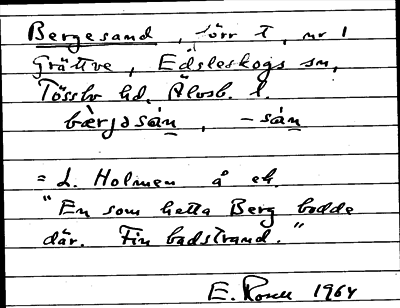 Bergesand, förr t, nr 1
Grättve, Edsleskogs sn,
Tössbo hd, Älvsb. l.
bærjəsán, -sán
= L. Holmen å ek.
"En som hetta Berg bodde
där. Fin badstrand."
E. Rosell 1964